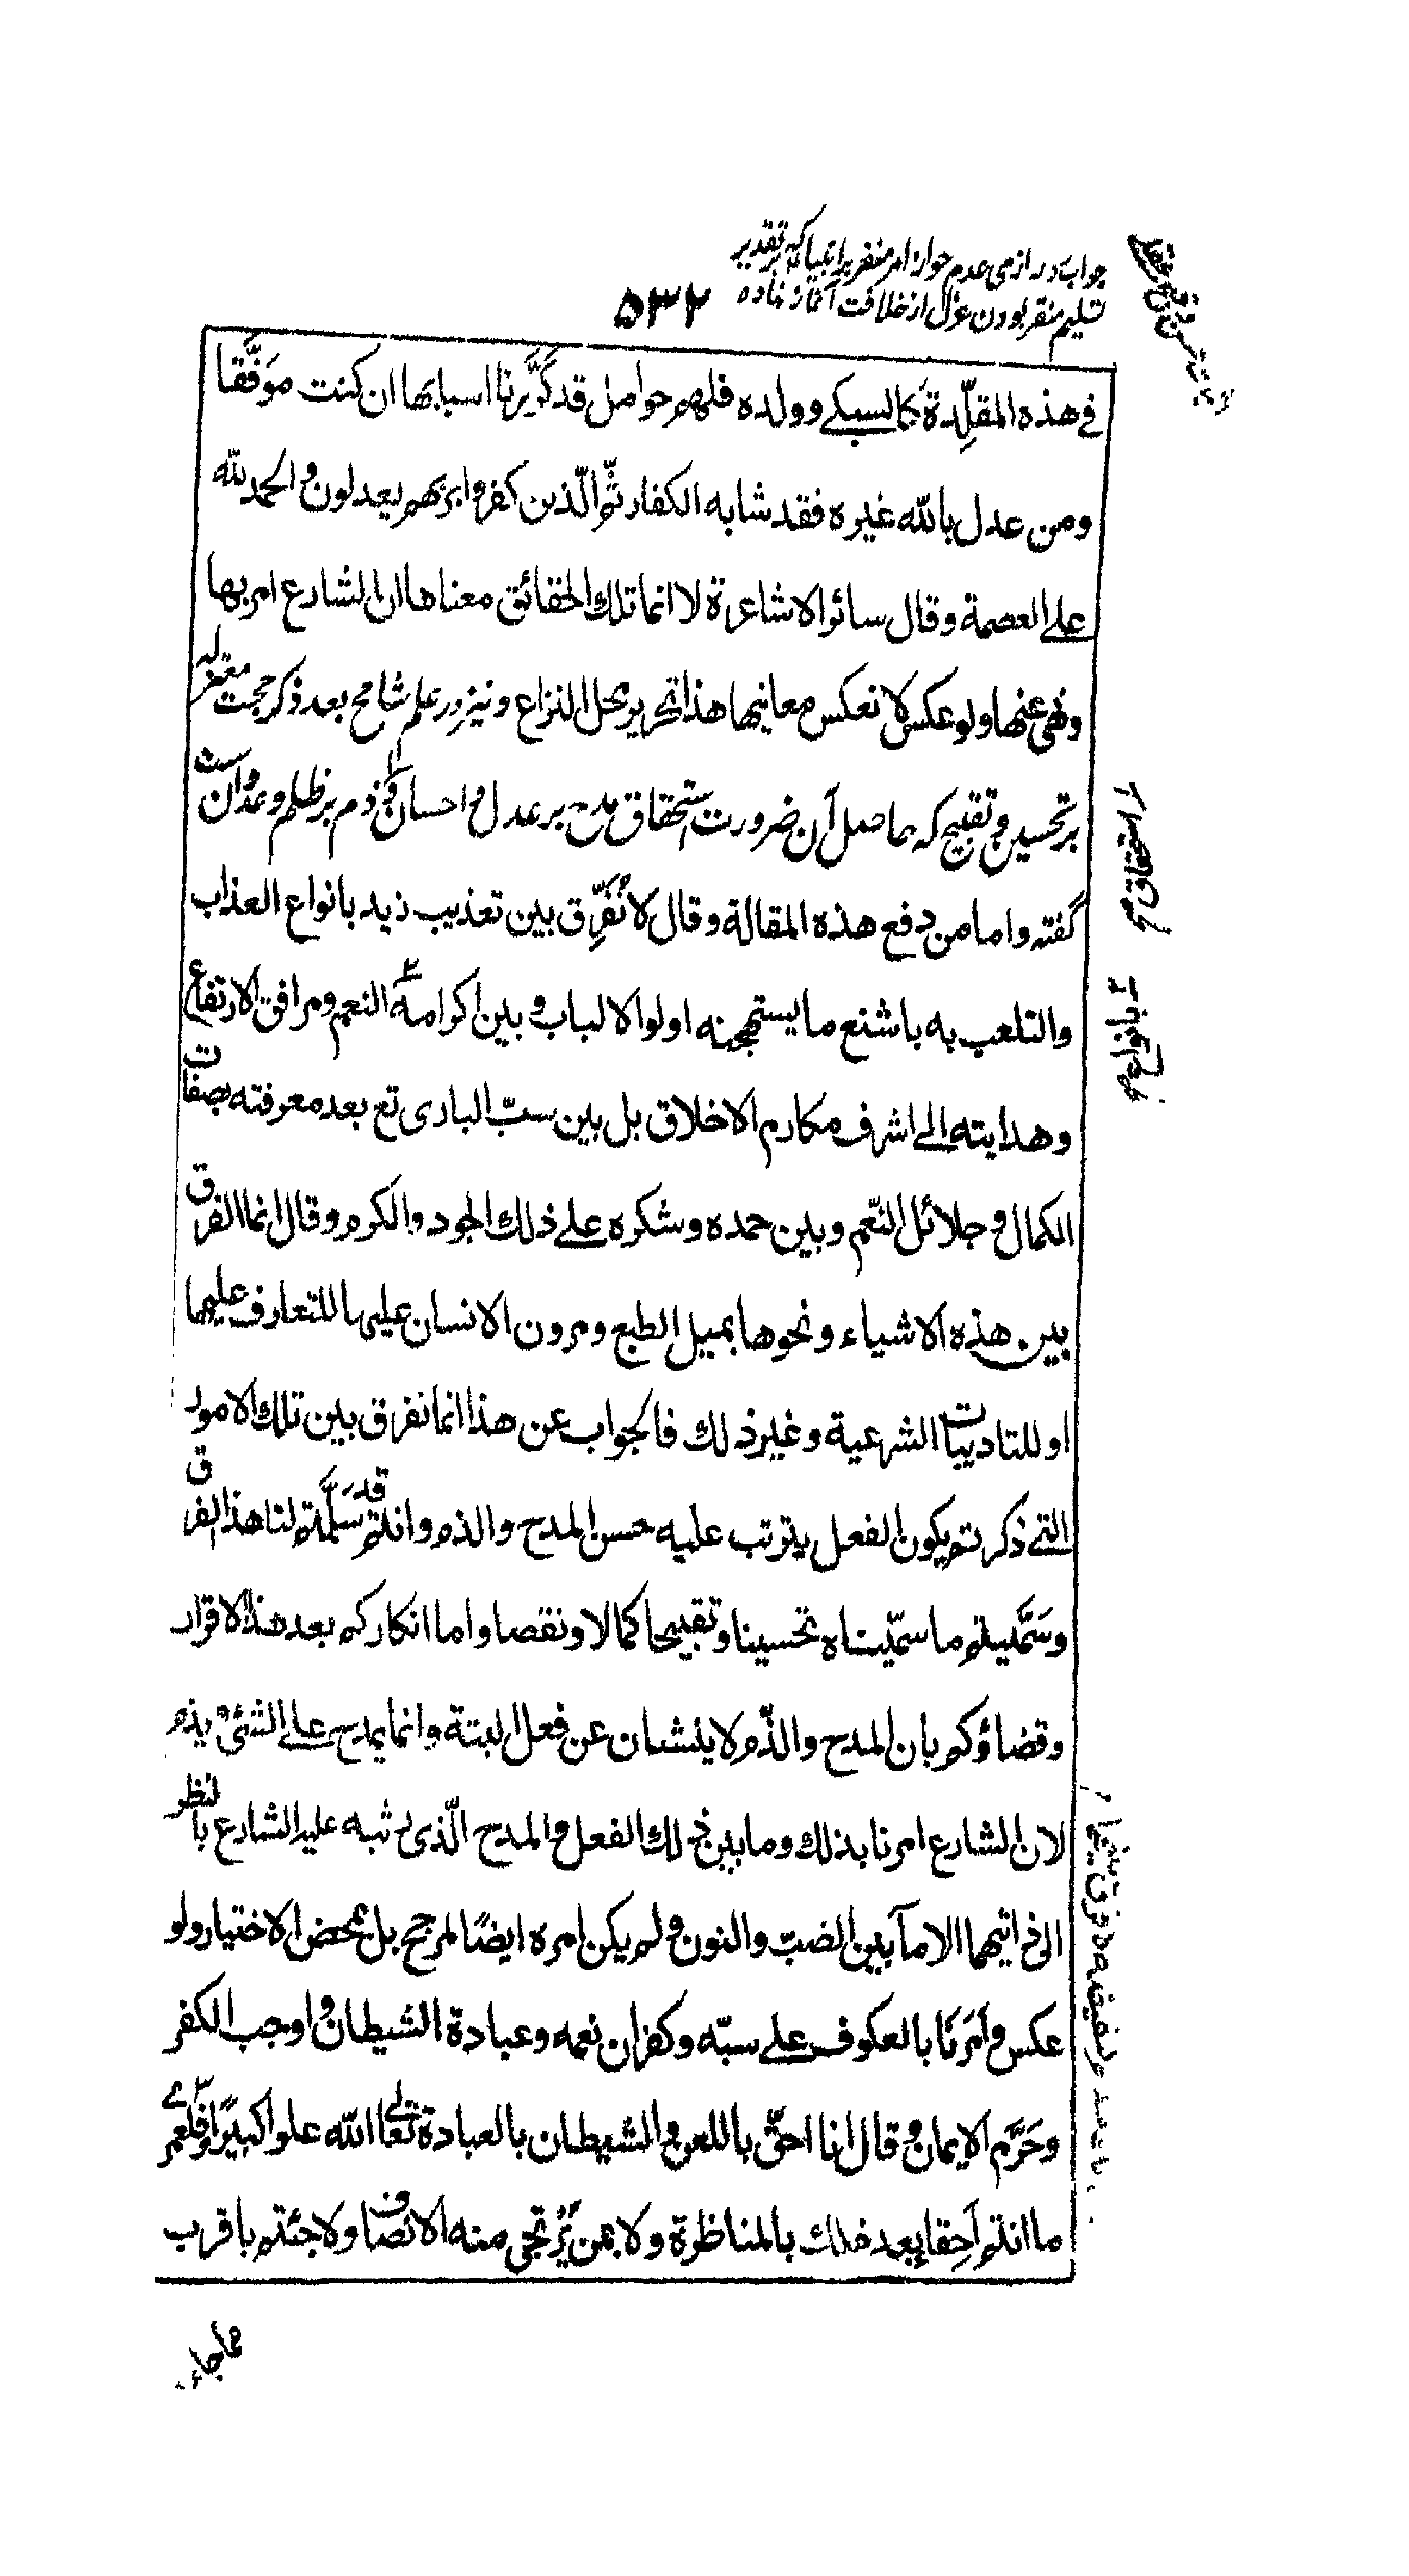 جواب در رازمی عدم جواز امر منفر بر انبیا که بر تقدیر
تسلیم منفر بودن عزل از خلافت آغاز نهاده
۵۳۲
فی هذه المقلّدة کالسبکی وولده فلهم حوامل قد کرّرنا اسبابها ان کنت موفّقا
ومن عدل بالله غیره فقد شابه الکفار ثمّ الّذین کفروا بربهم یعدلون والحمد لله
علی العصمة وقال سائر الاشاعرة لا انما تلك الحقائق معناها ان الشارع امر بها
ونهی عنها ولو عکس لانعکس معانیها هذا تحریر محل النزاع ونیز در علم شامخ بعد ذکر حجت معتزله
بر تحسین وتقبیح که حاصل آن ضرورت استحقاق مدح بر عدل و احسان و ذم بر ظلم و عدوان است
گفته واما من دفع هذه المقالة وقال لا نُفَرِّق بین تعذیب زید بانواع العذاب
والتلعب به باشنع ما یستهجنه اولوا الالباب و بین اکرامه النعم ومرافق الارتفاع
وهدایته الی اشرف مکارم الاخلاق بل بین سبّ الباری تع بعد معرفته بصفات
الکمال و جلائل النّعم وبین حمده وشکره علی ذلك الجود والکرم وقال انما الفرق
بین هذه الاشیاء ونحوها بمیل الطبع ومرون الانسان علیها للتعارف علیها
او للتادیبات الشرعیة وغیر ذلك فالجواب عن هذا انما نفرق بین تلك الامور
التی ذکرتم بکون الفعل یترتب علیه حسن المدح والذم وانتم قد سلّمتم لنا هذا الفرق
وسَمَّیتم ما سمّیناه تحسینا وتقبیحا کمالا ونقصا واما انکارکم بعد هذا الاقرار
وقضاؤکم بان المدح والذّم لا ینشان عن فعل البتة وانما یمدح علی الشیٔ ویذم
لان الشارع امرنا بذلك وما بین ذلك الفعل والمدح الّذی رتبه علیه الشارع بالنظر
الی ذاتیهما الا ما بین الضبّ والنون ولم یکن امره ایضًا لمرجح بل بمحض الاختیار ولو
عکس و اَمَرَنَا بالعکوف علی سبّه وکفران نعمه وعبادة الشیطان واوجب الکفر
وحَرَّم الایمان وقال انا احقّ باللعن والشیطان بالعبادة تعالی الله علوا کبیرًا فلعمری
ما انتم اَحِقاء بعد ذلك بالمناظرة ولا بمن یُرتجی منه الانصاف ولا جئتم باقرب
مما جاء